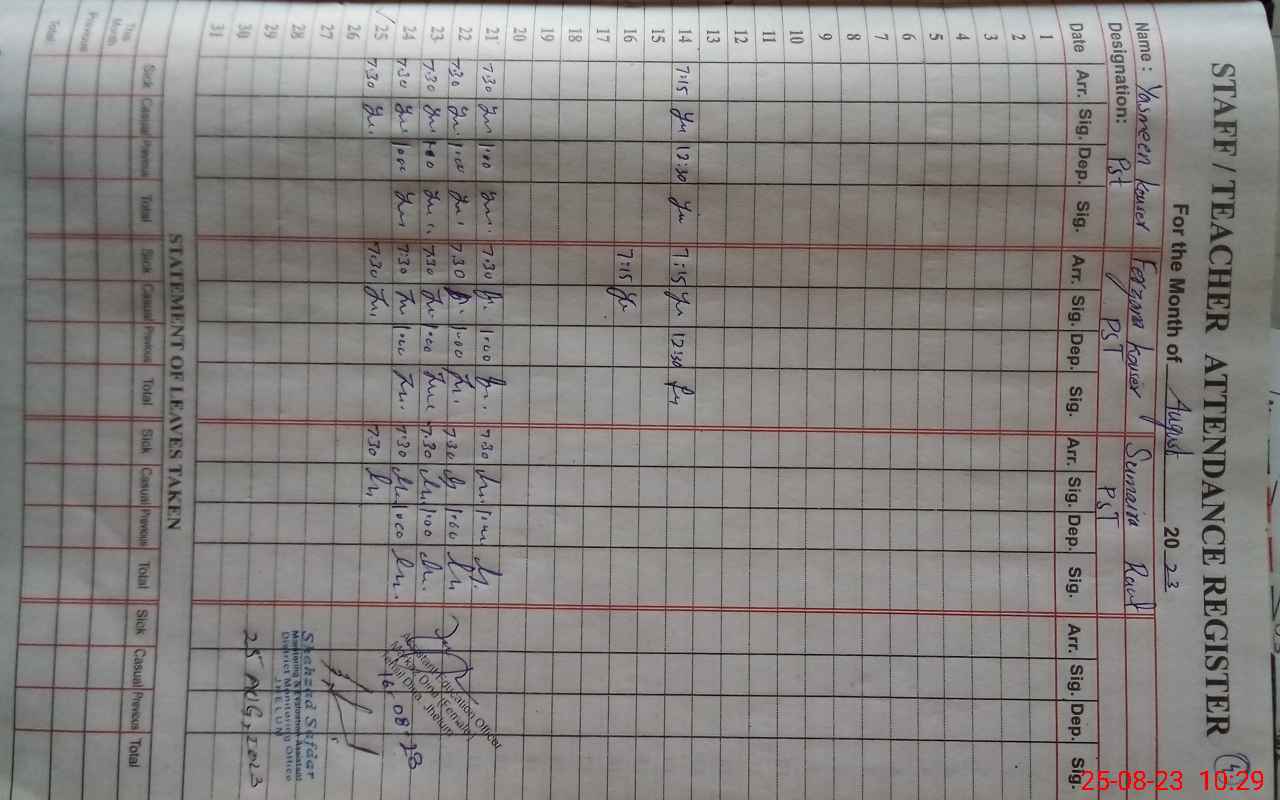 STAFF / TEACHER ATTENDANCE REGISTER
For the Month of August 2023
Name: Yasmeen Kouser Farzana Kouser Sumaira Rauf
Designation: PST PST PST
Date Arr. Sig. Dep. Sig. Arr. Sig. Dep. Sig. Arr. Sig. Dep. Sig. Arr. Sig. Dep. Sig.
1
2
3
4
5
6
7
8
9
10
11
12
13
14 7:15 12:30 7:15 12:30
15
16 7:15
17
18
19
20
21 7:30 1:00 7:30 1:00 7:30 1:00
22 7:30 1:00 7:30 1:00 7:30 1:00
23 7:30 1:00 7:30 1:00 7:30 1:00
24 7:30 1:00 7:30 1:00 7:30 1:00
25 7:30 7:30 7:30
26
27
28
29
30
31
Assistant Education Officer
Markaz Dina (Female)
Tehsil Dina, Jhelum
16-08-23
Shahzad Safdar
Monitoring & Evaluation Assistant
District Monitoring Office
JHELUM
25 AUG, 2023
STATEMENT OF LEAVES TAKEN
Sick Casual Previous Total Sick Casual Previous Total Sick Casual Previous Total Sick Casual Previous Total
This Month
Previous
Total
25-08-23 10:29